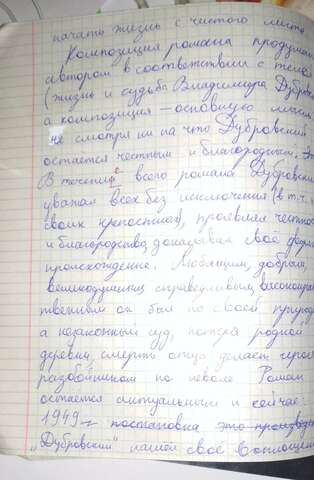 начать жизнь с чистого листа
Композиция романа продумана
автором в соответствии с темой
(жизнь и судьба Владимира Дубров
а композиция – основную мысль
не смотря ни на что Дубровский
остаётся честным и благородным.
В течение всего романа Дубровский
уважал всех без исключения (в т.ч.
своих крепостных), проявлял честность
и благородства, доказывая своё
происхождение. Любящим, добрым,
великодушным, справедливым, высоконравс
твенным он был по своей природе
а незаконный суд, потеря родной
деревни, смерть отца делает героя
разбойником по неволе Роман
остаётся актуальным и сейчас:
1949г постановка это произвед
"Дубровский" нашёл своё воплощение